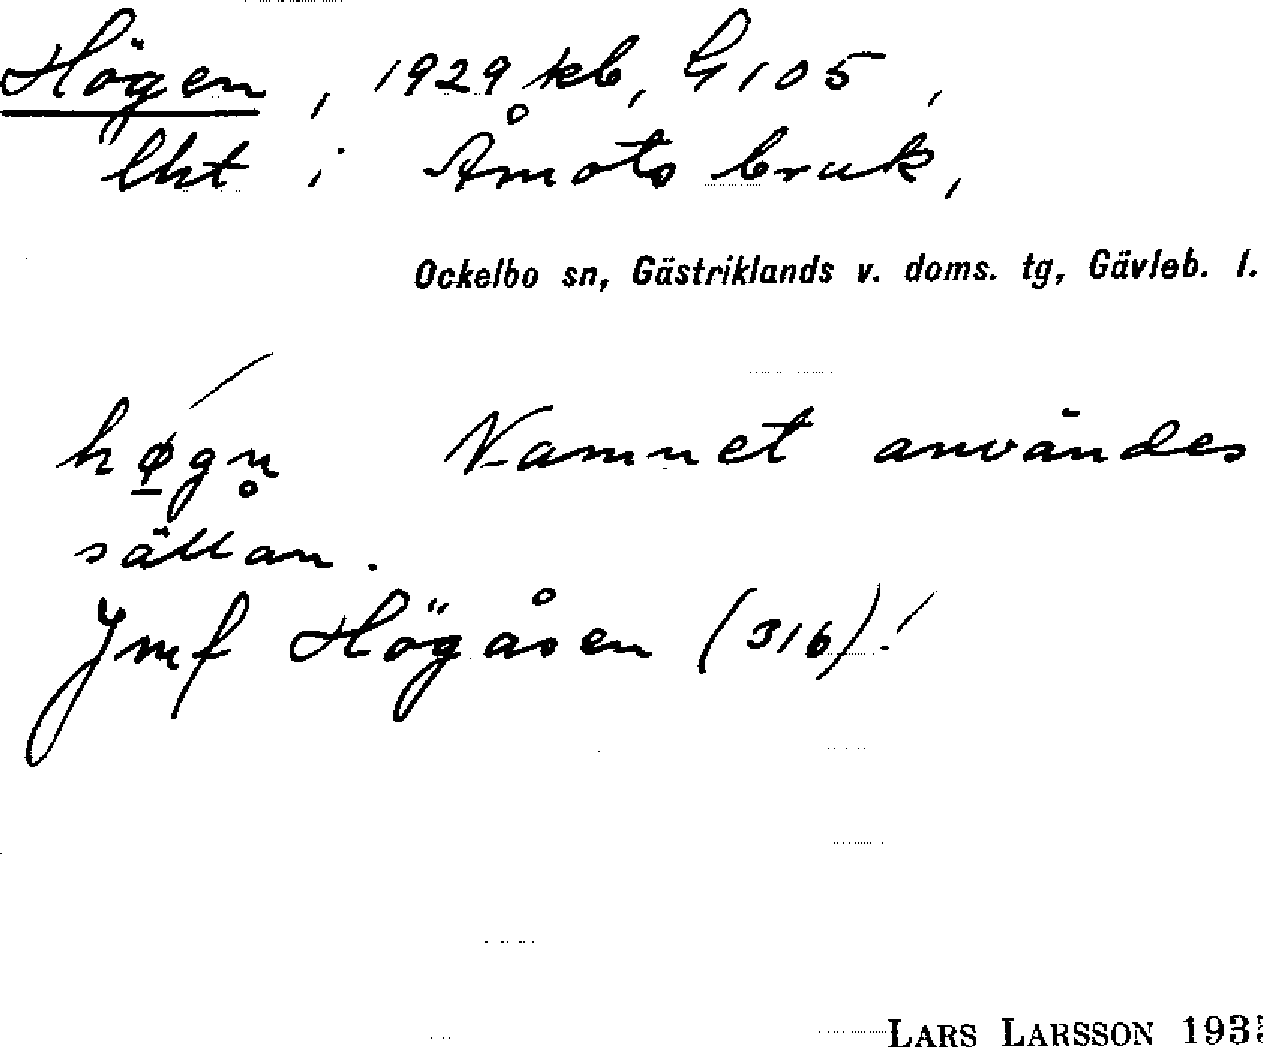 Högen, 1929 kb, G 105,
lht i Åmots bruk,
Ockelbo sn, Gästriklands v. doms. tg, Gävleb. l.
hø̠gn̥ Namnet användes
sällan.
Jmf Högåsen (316)!
LARS LARSSON 193